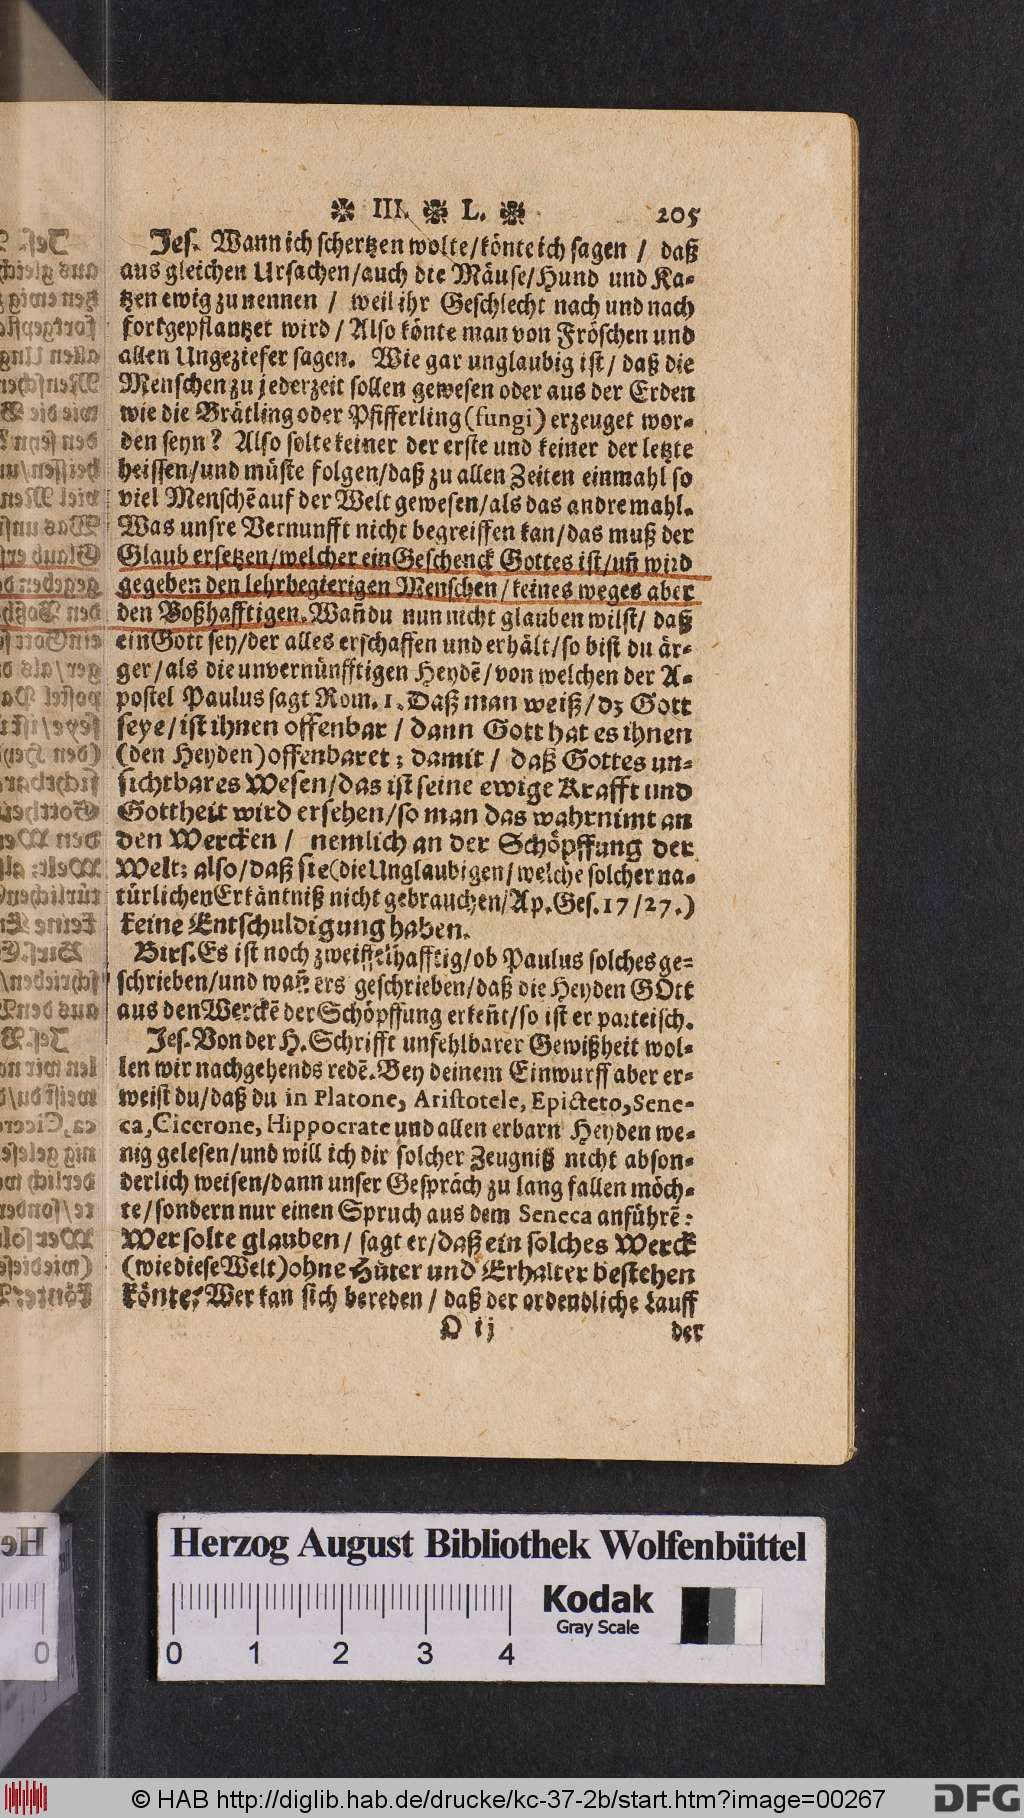 III. L. 205
Jes. Wann ich schertzen wolte/könte ich sagen / daß
aus gleichen Ursachen/auch die Mäuse/Hund und Ka-
tzen ewig zu nennen / weil ihr Geschlecht nach und nach
fortgepflantzet wird / Also könte man von Fröschen und
allen Ungeziefer sagen. Wie gar unglaubig ist / daß die
Menschen zu jederzeit sollen gewesen oder aus der Erden
wie die Brätling oder Pfifferling (fungi) erzeuget wor-
den seyn? Also solte keiner der erste und keiner der letzte
heissen/und müste folgen/daß zu allen Zeiten einmahl so
viel Menschē auf der Welt gewesen/als das andre mahl.
Was unsre Vernunfft nicht begreiffen kan/das muß der
Glaub ersetzen/welcher ein Geschenck Gottes ist/uñ wird
gegeben den lehrbegierigen Menschen/keines weges aber
den Boßhafftigen. Wañ du nun nicht glauben wilst/ daß
ein Gott sey/der alles erschaffen und erhält/so bist du är-
ger/als die unvernünfftigen Heydē/von welchen der A-
postel Paulus sagt Rom. 1. Daß man weiß/dz Gott
seye/ist ihnen offenbar / dann Gott hat es ihnen
(den Heyden) offenbaret; damit / daß Gottes un-
sichtbares Wesen/das ist seine ewige Krafft und
Gottheit wird ersehen/so man das wahrnimt an
den Wercken / nemlich an der Schöpffung der
Welt; also/daß sie (die Unglaubigen/welche solcher na-
türlichen Erkäntniß nicht gebrauchen/Ap. Ges. 17/27.)
keine Entschuldigung haben.
Birs. Es ist noch zweiffelhafftig/ob Paulus solches ge-
schrieben/und wañ ers geschrieben/daß die Heyden GOtt
aus den Werckē der Schöpffung erkeñt/so ist er parteisch.
Jes. Von der H. Schrifft unfehlbarer Gewißheit wol-
len wir nachgehends redē. Bey deinem Einwurff aber er-
weist du/daß du in Platone, Aristotele, Epicteto, Sene-
ca, Cicerone, Hippocrate und allen erbarn Heyden we-
nig gelesen/und will ich dir solcher Zeugniß nicht abson-
derlich weisen/dann unser Gespräch zu lang fallen möch-
te/sondern nur einen Spruch aus dem Seneca anführē:
Wer solte glauben/ sagt er/daß ein solches Werck
(wie diese Welt) ohne Hüter und Erhalter bestehen
könte? Wer kan sich bereden / daß der ordendliche Lauff
O ij der
Herzog August Bibliothek Wolfenbüttel
Kodak
Gray Scale
0 1 2 3 4
© HAB http://diglib.hab.de/drucke/kc-37-2b/start.htm?image=00267
DFG